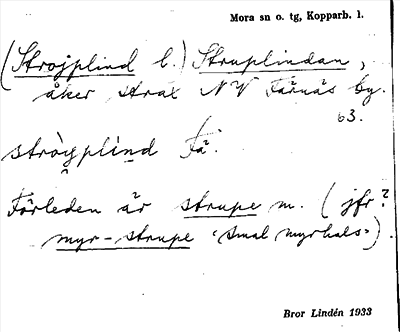 Mora sn o. tg, Kopparb. l.
(Strojplind l.) Struplindan,
åker strax NV Färnäs by.
63.
Fä.
Förleden är strupe m. (jfr?
myr-strupe "smal myrhals").
Bror Lindén 1933